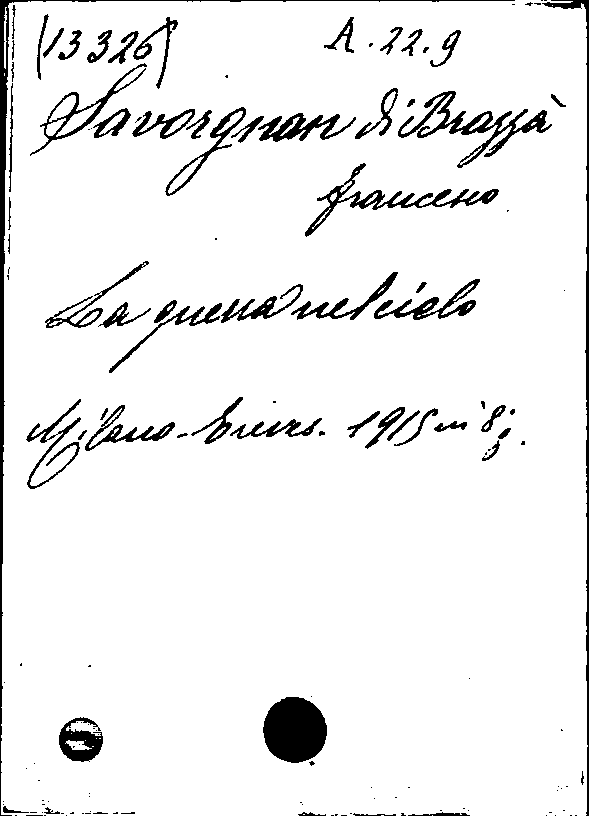 (13326) A.22.9
Savorgnan di Brazzà
Francesco
La guerra nel cielo
Milano - Treves. 1915 in 8°.